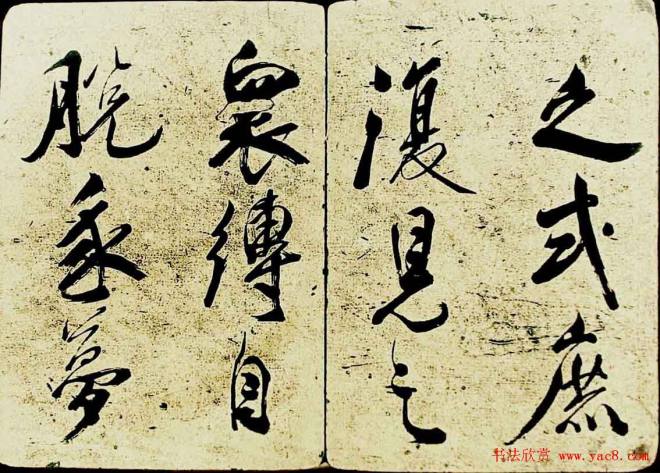 之式庶
復見之
衆縛自
脫夢
书法欣赏 www.yac8.com